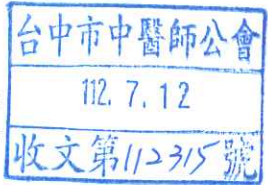 台中市中醫師公會
112.7.12
收文第112315號